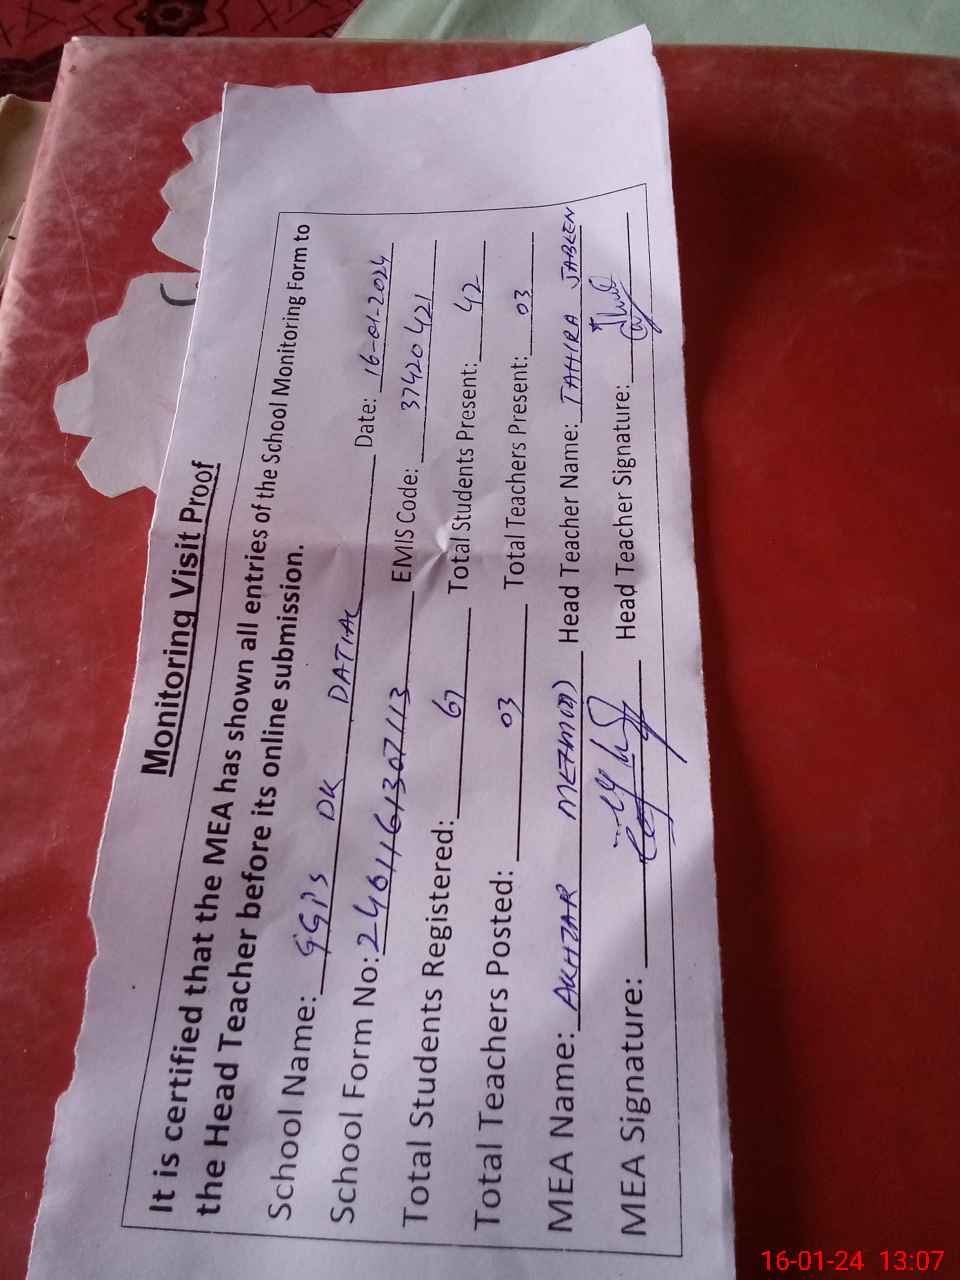 Monitoring Visit Proof
It is certified that the MEA has shown all entries of the School Monitoring Form to
the Head Teacher before its online submission.
School Name: GGPS DK DATIAL Date: 16-01-2024
School Form No: EMIS Code: 37420421
Total Students Registered: 67 Total Students Present: 42
Total Teachers Posted: 03 Total Teachers Present: 03
MEA Name: AKHZAR MEHMOOD Head Teacher Name: TAHIRA JABEEN
MEA Signature: Head Teacher Signature:
16-01-24 13:07